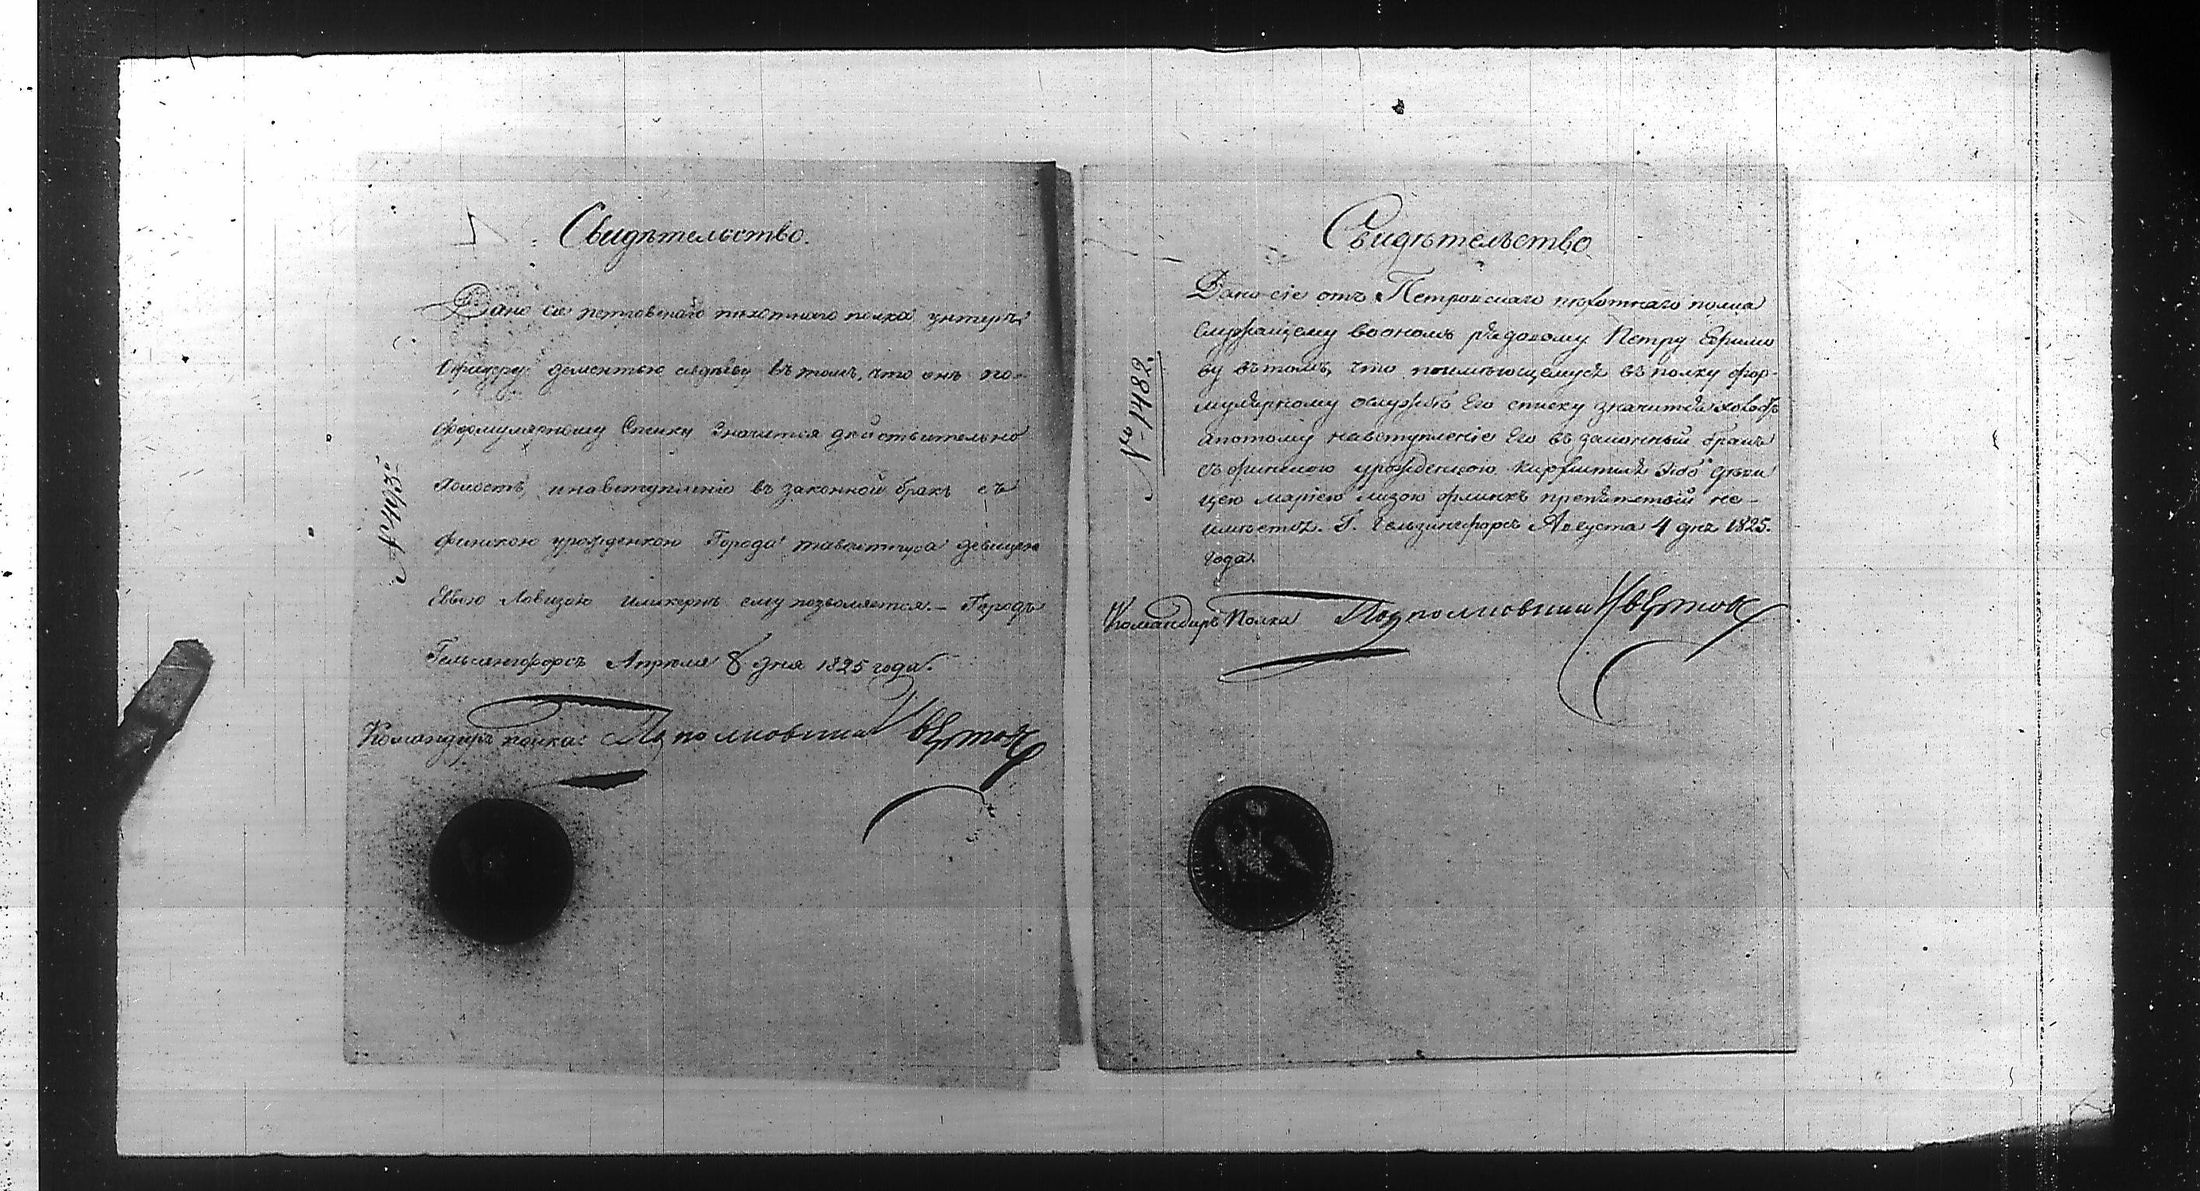 Свидѣтельство.
Дано сіе петровскаго пехотнаго полка унтеръ
Офицеру дементью въ томъ, что онъ по
формулярному Списку Значится действительно
холостъ, и навступленіе въ законной бракъ съ
финскою урожденкою Города тавастгуса девицею
Еввою Ловизою ему позволяется. — Городъ
Гельсингфорсъ Апреля 8 дня 1825 года.
Командиръ полка: Подполковникъ
№ 493
Свидѣтельство
Дано сіе отъ Петровскаго пѣхотнаго полка
Служащему воономъ рядовому Петру Ефимо
ву вътомъ, что поимѣющемуся въ полку фор-
мулярному ослужбѣ Его списку значится холостъ
апотому навступленіе Его въ законный бракъ
съ финскою урожденкою дѣви
цею Маріею лизою флинкъ препятствій не-
имѣется. Г. Гельзингфорсъ Августа 4 дня 1825.
года.
Командиръ Полка Подполковникъ
№ 1482.